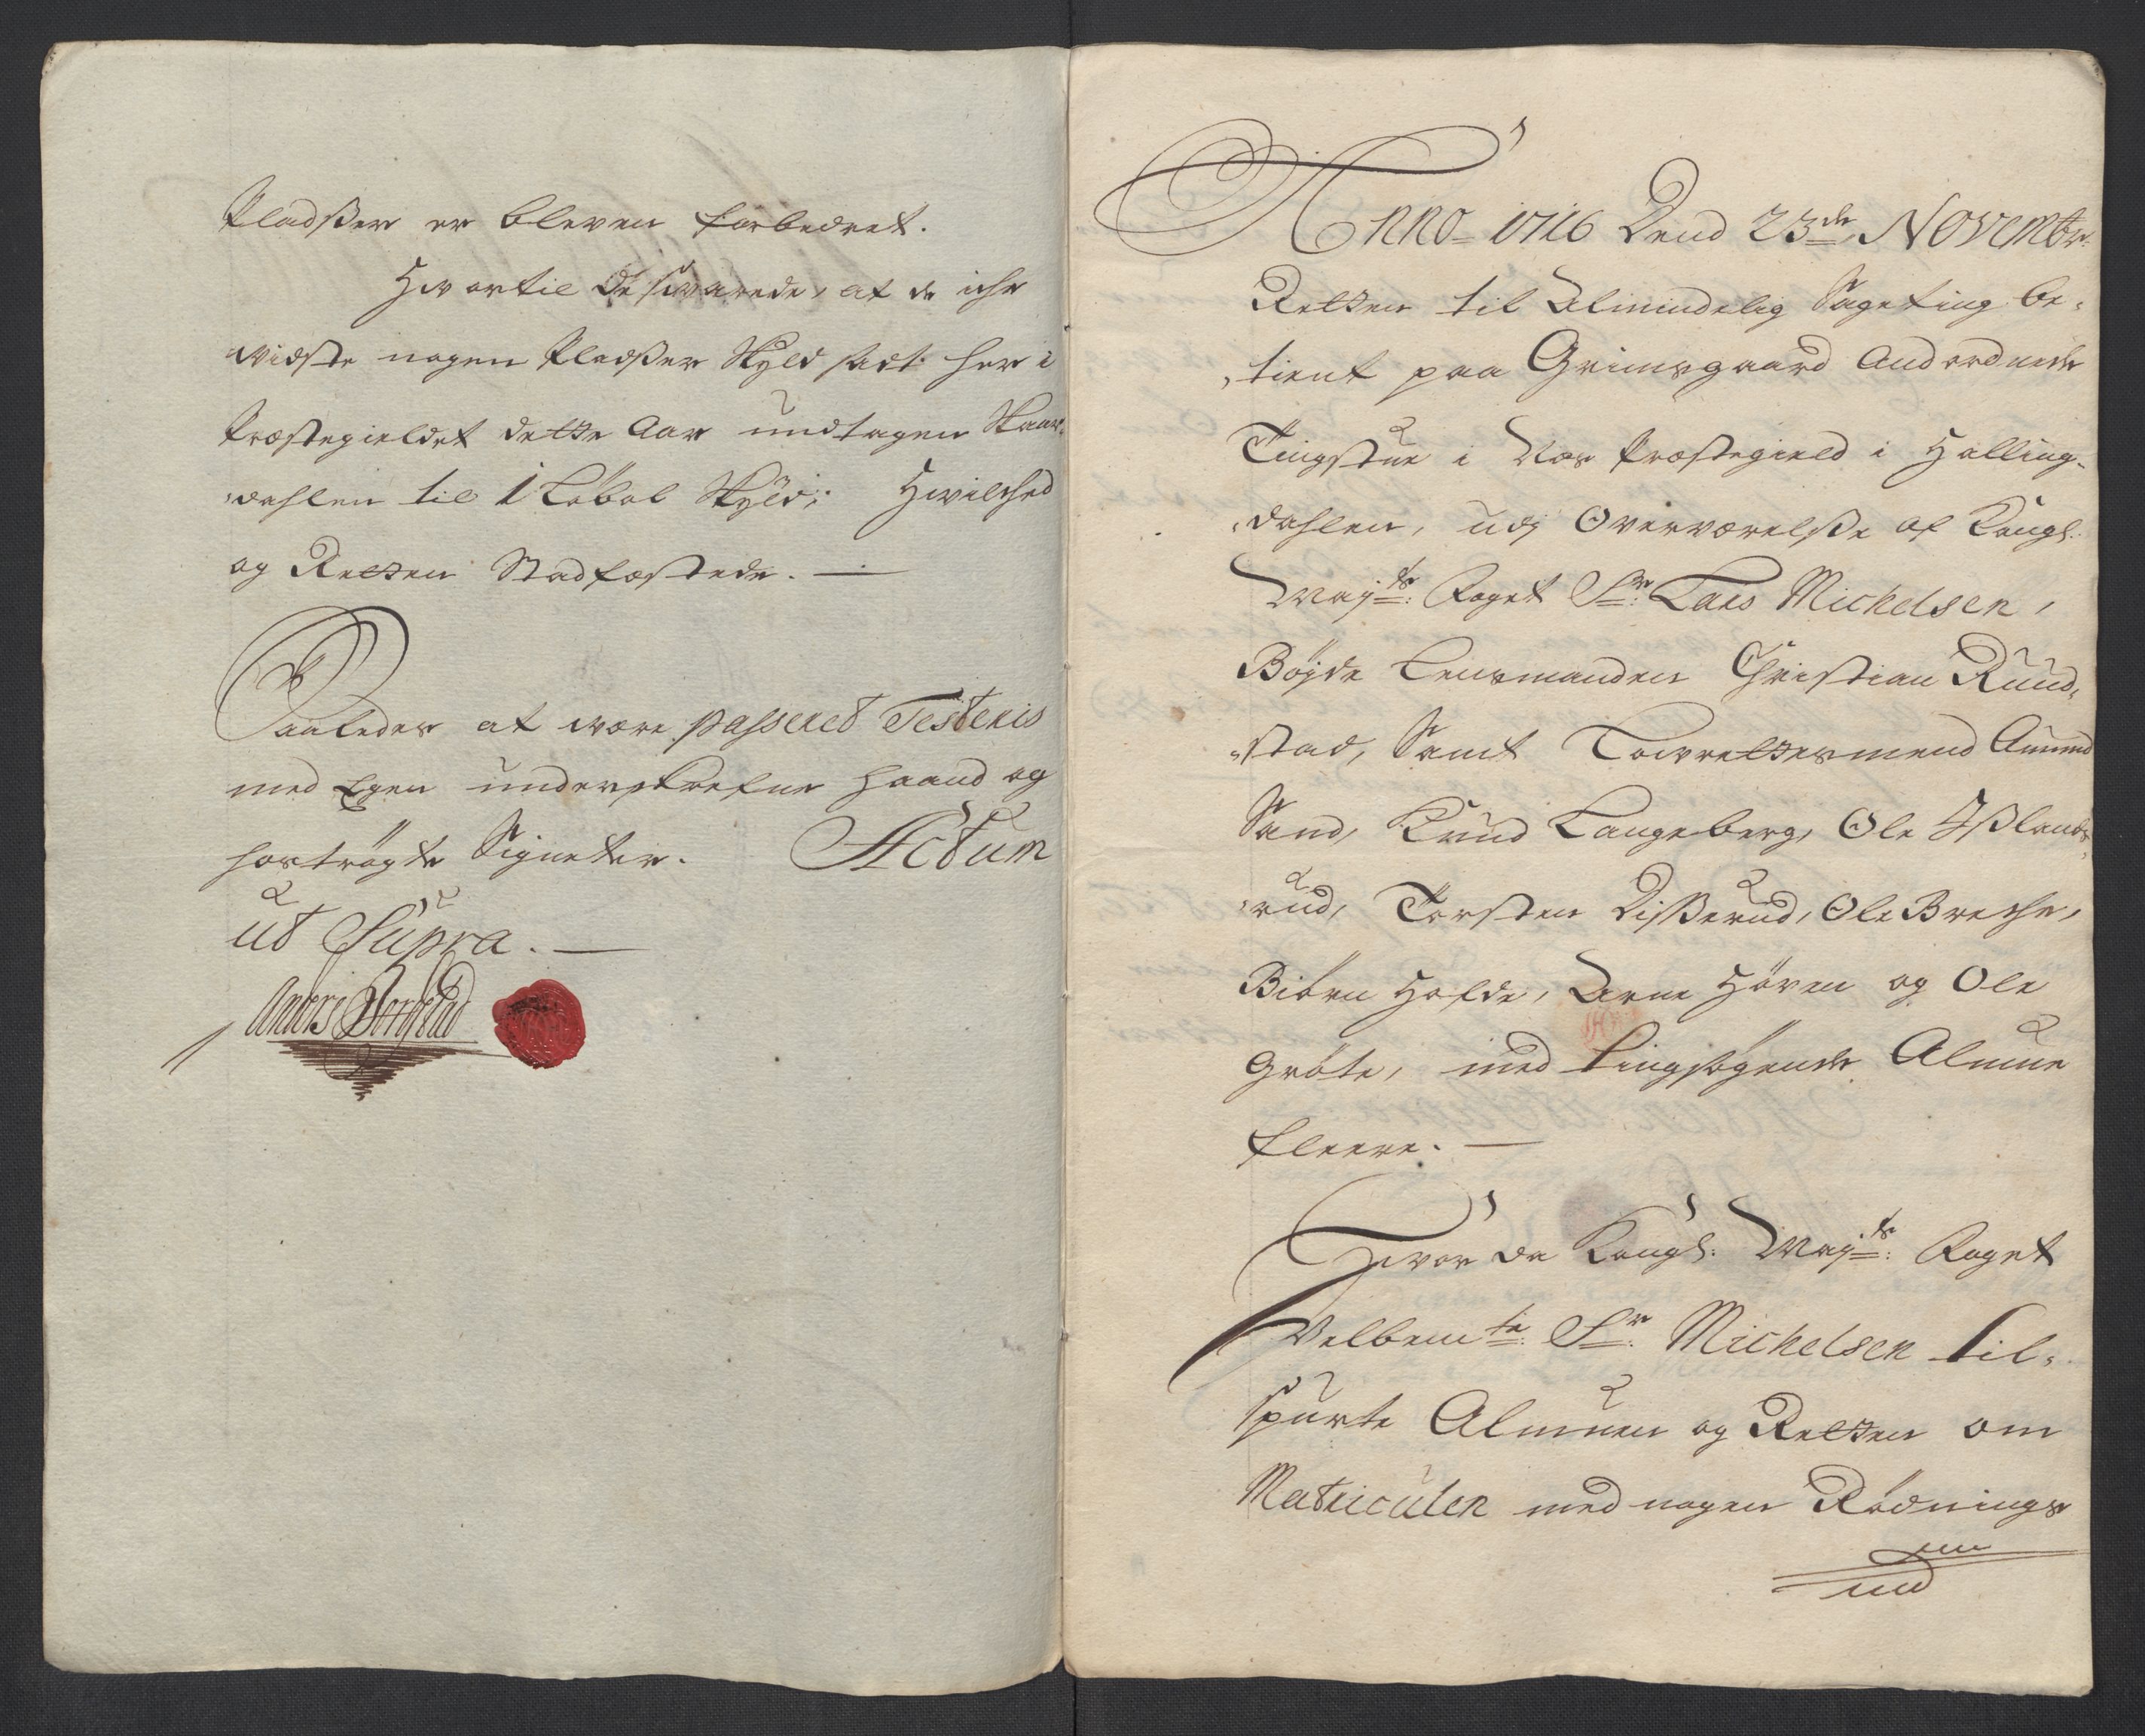 Pladßer er bleven forbedret.
Hvortil de svarede, at de iche
vidste nogen Pladßer Skyld sadt her i
Præstegieldet dette Aar undtagen Skaar-
dahlen til 1 Løbol Skyld; Hvilched
og Retten Stadfæstede. —
Saaledes at være passeret Testeris
med Egen underskrefne Haand og
hostrøgte Signeter. Actum
ut Supra. —
Anders
Anno 1716 Dend 23de Novembr:
Retten til Almindelig Sageting be-
tient paa Grimsgaard Andordnede
Tingstue i Næs Præstegield i Halling-
dahlen, udj Overværelße af Kongl:
Mayts: Foget Sr: Lars Michelsen,
Bøyde Lensmanden Christian Rund-
stad, Samt Laurettesmend Amund
Sand, Knud Langeberg, Ole Ißlands-
rud, Torsten Dißerud, Ole Breche,
Biørn Hofde, Arne Høven og Ole
Grøte, med Tingsøgende Almue
fleere. —
Hvor da Kongl: Mayts: Foget
Velbemte: Sr: Michelsen til-
spurte Almuen og Retten om
Matriculen med nogen Rødnings